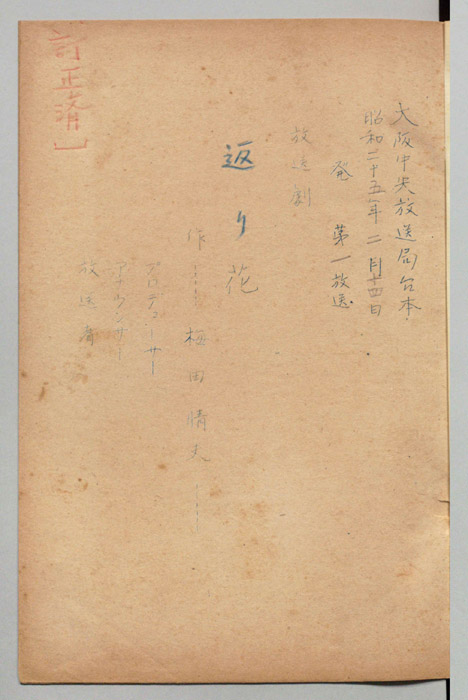 大阪中央放送局台本
昭和二十五年二月十四日
発 第一放送
放送劇
返り花
作……梅田晴夫……
プロデューサー
アナウンサー
放送者
訂正済